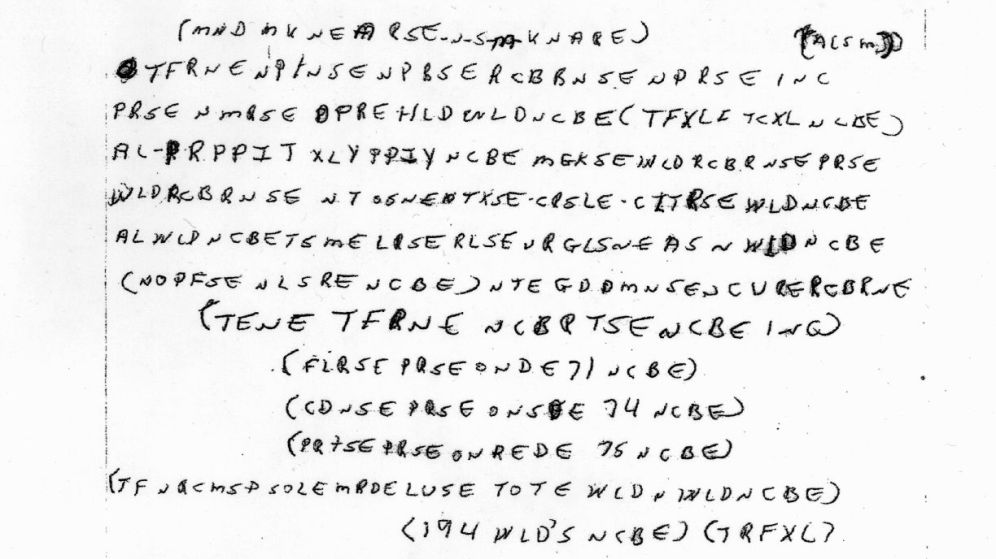 (MND MKNEARSE-N-S-M-KNARE) (ACSM)
TFRNE NPINSE NPBSERCBBRNSE NPRSE INC
PRSE NMRSE OPREHLD WLDNCBE (TFXLF TCXL NCBE)
AL-PRPPIT XLYPPIY NCBE MGKSE WLDRCBRNSE PRSE
WLDRCBRNSE NTOSNENTXSE-CRSLE-CITRSE WLDNCBE
ALWLDNCBETSMELRSERLSEURGLSNEASNWLDNCBE
(NOPFSE NLSRE NCBE) NTEGDDMNSENCURERCBRNE
(TENE TFRNE NCBRTSENCBE INC)
(FLRSE PRSE ONDE 71 NCBE)
(CDNSE PRSE ONSDE 74 NCBE)
(PRTSE PRSE ONREDE 75 NCBE)
(TFNRCMSP SOLE MRDELUSE TOTE WLDN WLDNCBE)
(194 WLD'S NCBE) (TRFXL)